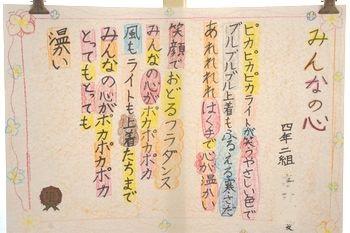 みんなの心
四年二組
ピカピカピカライトが笑うやさしい色で
ブルブルブル上着もふるえる寒さだ
あれれれれはく手で心が温かい
笑顔でおどるフラダンス
みんなの心がポカポカポカ
風もライトも上着たちまで
みんなの心がポカポカ
とってもとっても
温かい